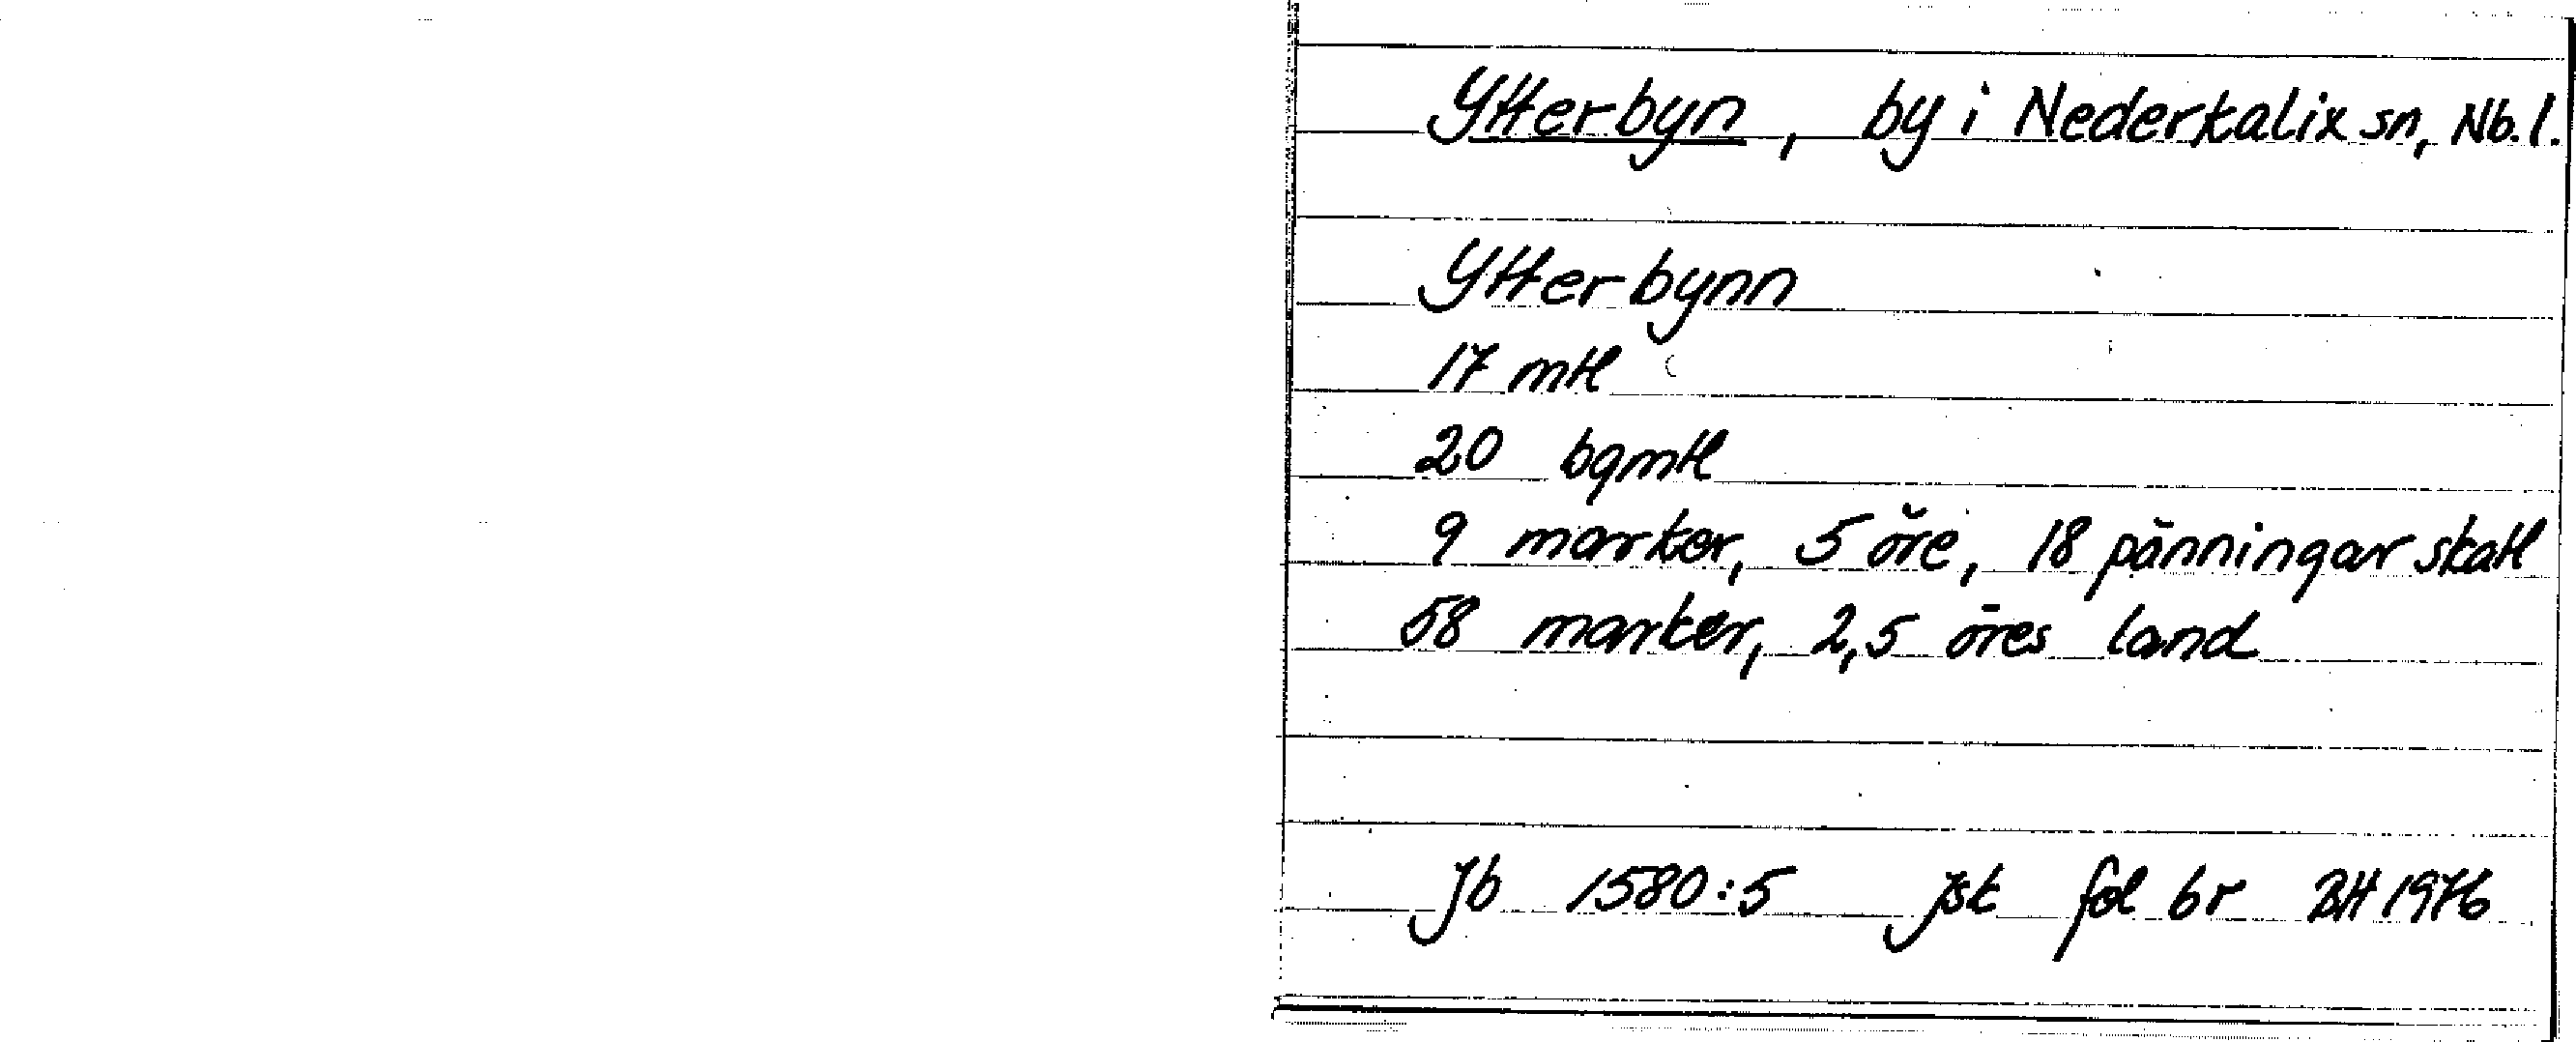 Ytterbyn, by i Nederkalix sn, Nb. l.
Ytterbynn
17 mtl
20 bgmtl
9 marker, 5 öre, 18 pänningar skatt
58 marker, 2,5 öres land
Jb 1580:5 jsk fol 6r BH 1976